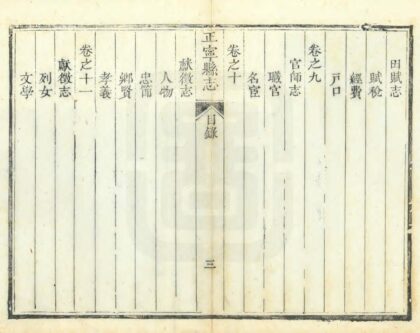 田賦志
賦稅
經費
戶口
卷之九
官師志
職官
名宦
卷之十
正寧縣志
目錄
三
獻徵志
人物
忠節
鄉賢
孝義
卷之十一
獻徵志
列女
文學